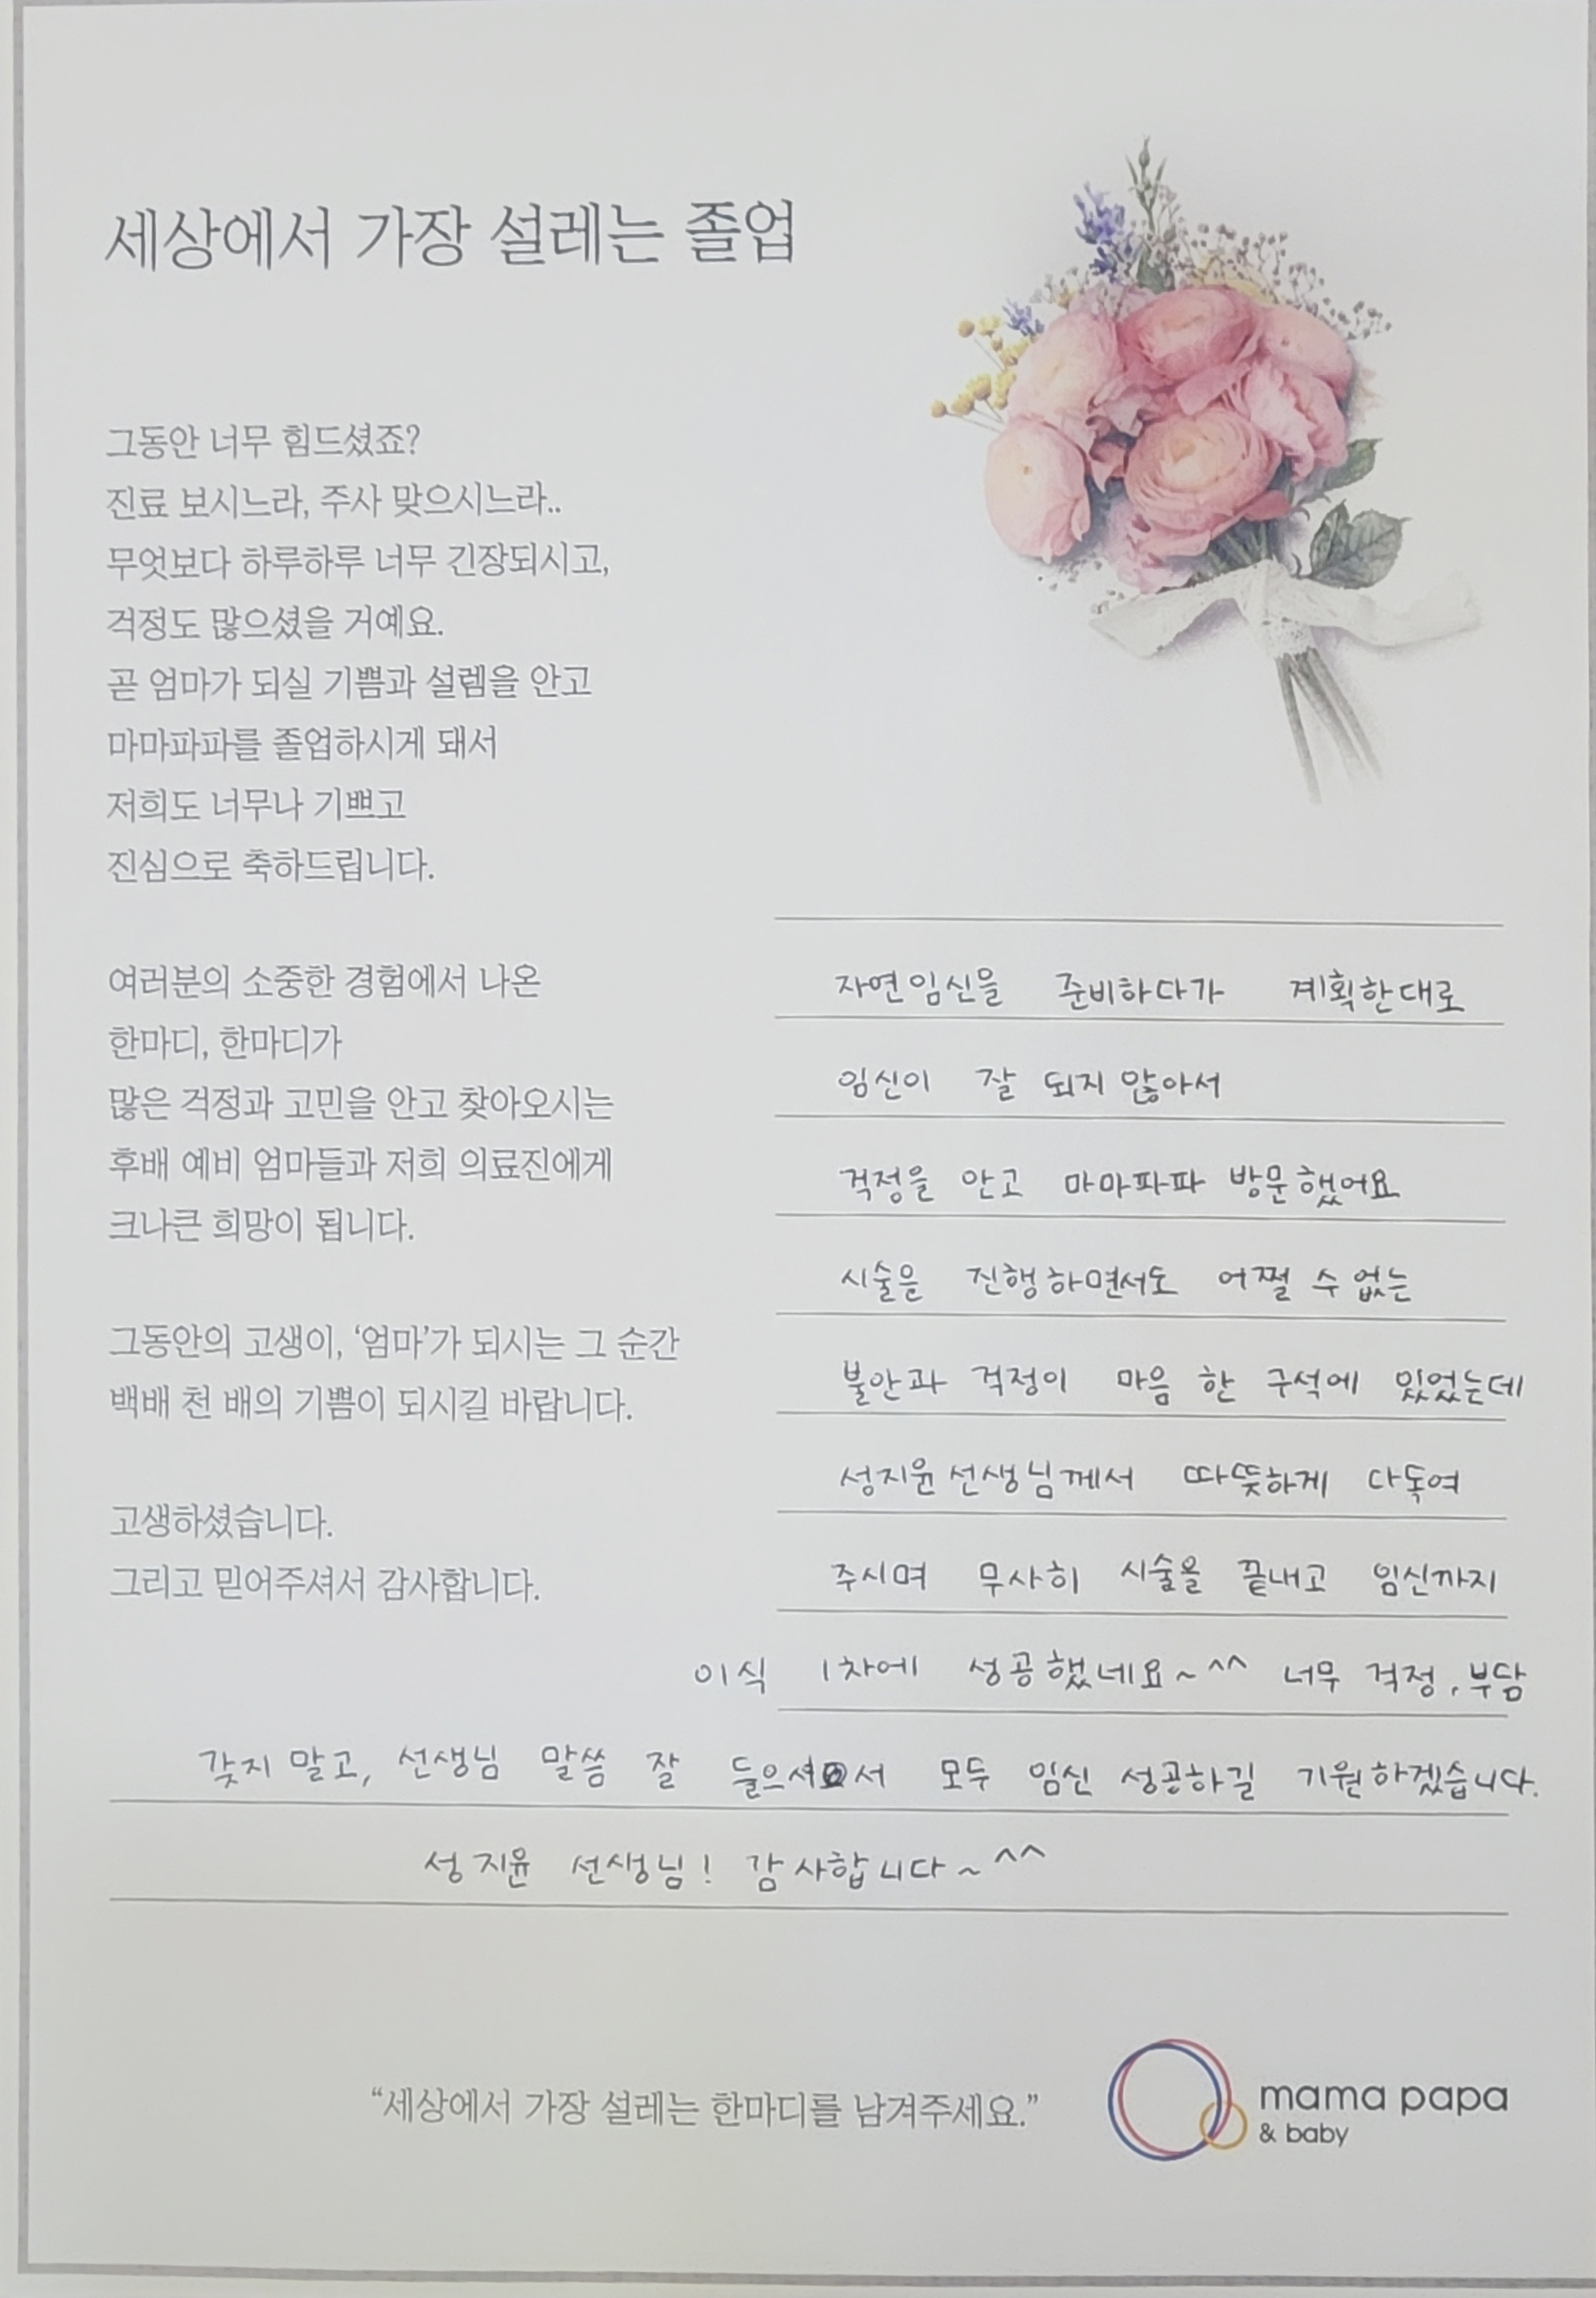 세상에서 가장 설레는 졸업
그동안 너무 힘드셨죠?
진료 보시느라, 주사 맞으시느라..
무엇보다 하루하루 너무 긴장되시고,
걱정도 많으셨을 거예요.
곧 엄마가 되실 기쁨과 설렘을 안고
마마파파를 졸업하시게 돼서
저희도 너무나 기쁘고
진심으로 축하드립니다.
여러분의 소중한 경험에서 나온
한마디, 한마디가
많은 걱정과 고민을 안고 찾아오시는
후배 예비 엄마들과 저희 의료진에게
크나큰 희망이 됩니다.
그동안의 고생이, ‘엄마’가 되시는 그 순간
백배 천 배의 기쁨이 되시길 바랍니다.
고생하셨습니다.
그리고 믿어주셔서 감사합니다.
자연임신을 준비하다가 계획한대로
임신이 잘 되지 않아서
걱정을 안고 마마파파 방문했어요
시술을 진행하면서도 어쩔 수 없는
불안과 걱정이 마음 한 구석에 있었는데
성지윤 선생님께서 따뜻하게 다독여
주시며 무사히 시술을 끝내고 임신까지
이식 1차에 성공했네요~^^ 너무 걱정, 부담
갖지 말고, 선생님 말씀 잘 들으셔서 모두 임신 성공하길 기원하겠습니다.
성지윤 선생님! 감사합니다~^^
“세상에서 가장 설레는 한마디를 남겨주세요.”
mama papa
& baby